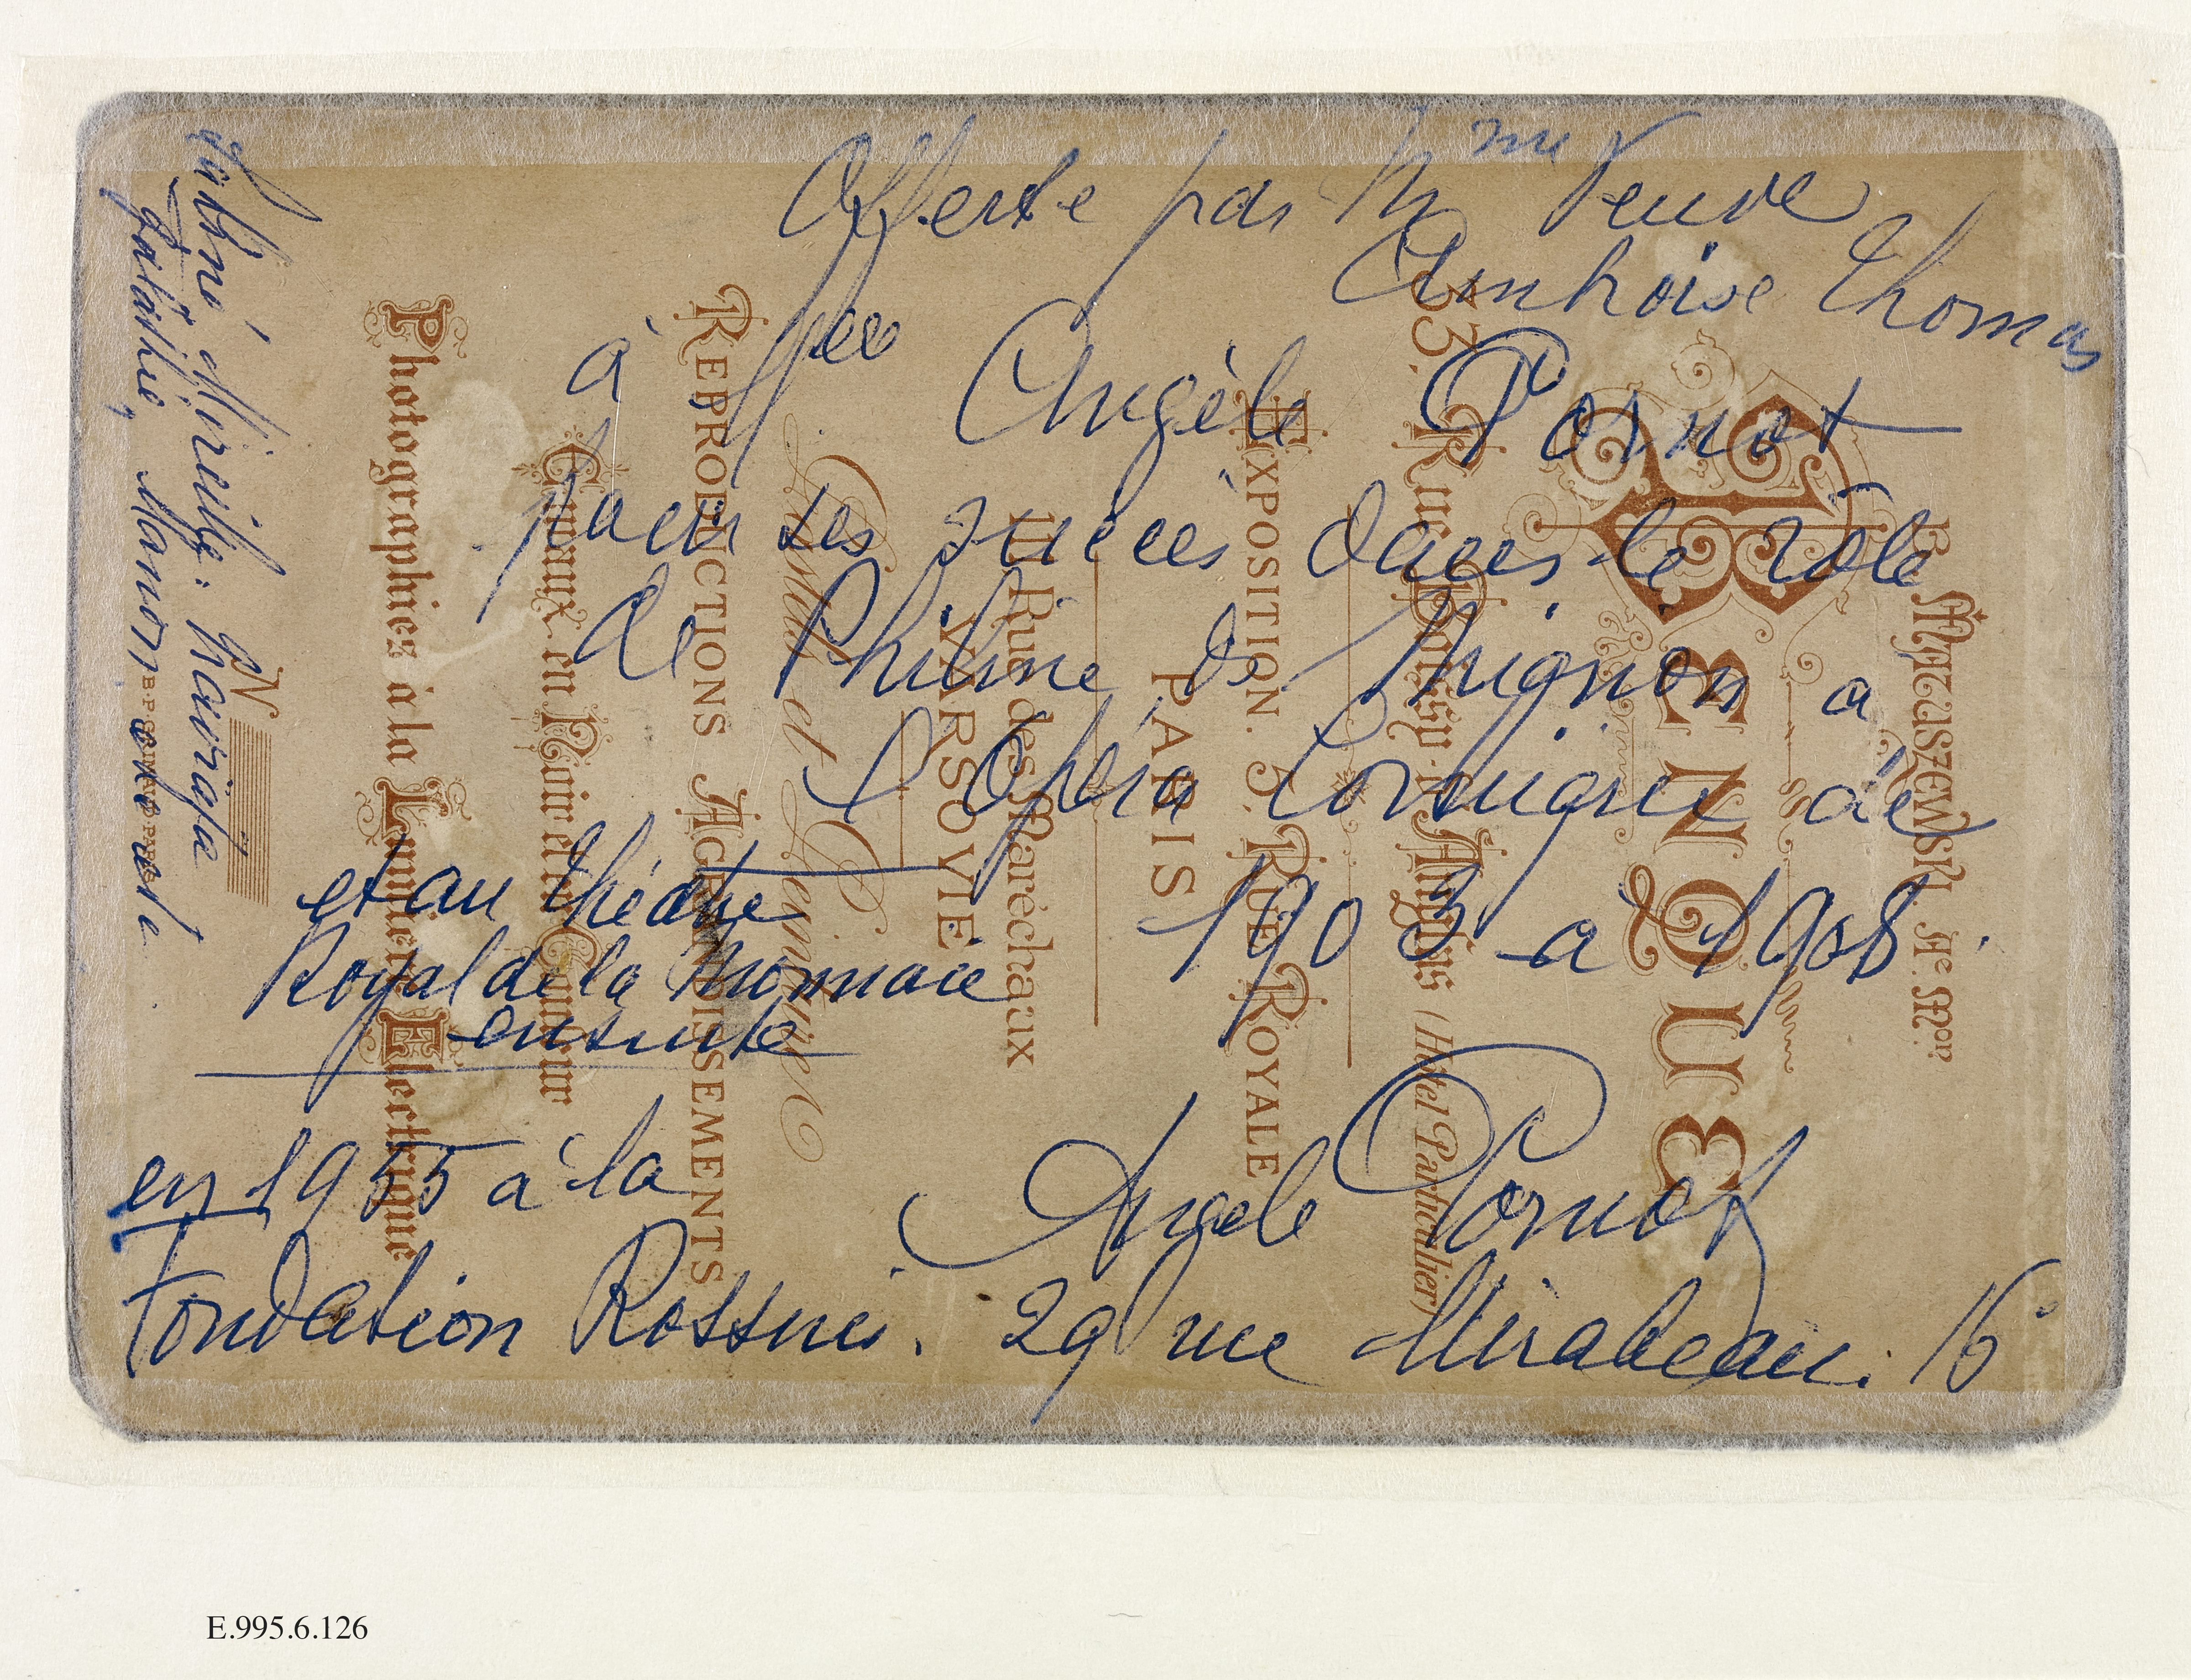 Offerte par Mme Veuve
Ambroise Thomas
à Mlle Angèle Pornot
pour ses succès dans le rôle
de Philine de Mignon à
l'Opéra Comique de
1903 à 1908.
et au théâtre
Royal de la Monnaie
ensuite
en 1955 à la
Fondation Rossini.
Angèle Pornot
29 rue Mirabeau. 16e
Lakmé, Mireille:
Galathée, Manon,
MATUSZEWSKI
BENQUE
33, Rue Boissy-d'Anglas (Hôtel Particulier)
EXPOSITION. 5. RUE ROYALE
PARIS
111 Rue des Maréchaux
VARSOVIE
Pastels et Peintures
REPRODUCTIONS AGRANDISSEMENTS
Émaux en Noir et en Couleur
Photographies à la Lumière Electrique
No
E.995.6.126